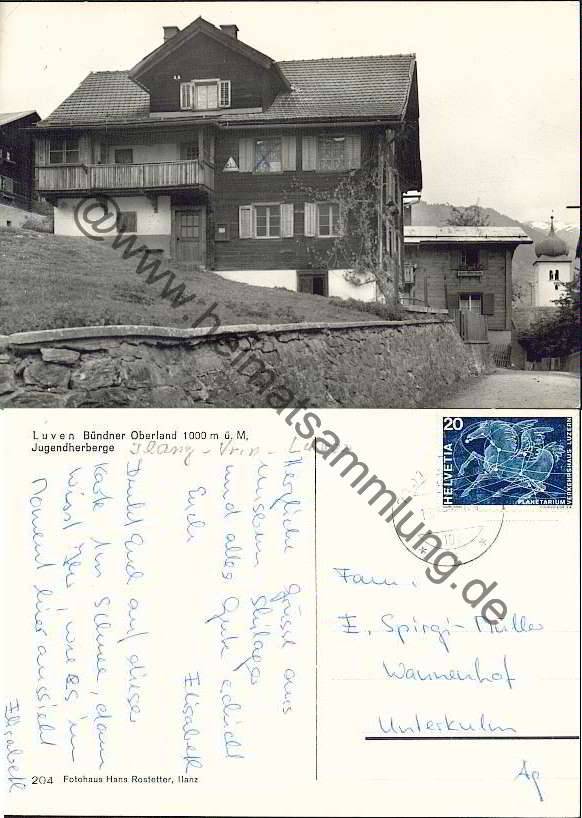 @www.heimatsammlung.de
Luven Bündner Oberland 1000 m ü. M,
Jugendherberge
Ilanz - Vrin -
Herzliche Grüsse aus
unserem Skilager
und alles Gute
Euch
Elisabeth
Denkt Euch auf dieser
Karte den Schnee, dann
wisst Ihr, wie es im
Moment hier aussieht
Elisabeth
204 Fotohaus Hans Rostetter, Ilanz
20
HELVETIA
PLANETARIUM
VERKEHRSHAUS LUZERN
Fam.
E. Spirgi-Müller
Wannenhof
Unterkulm
Ag